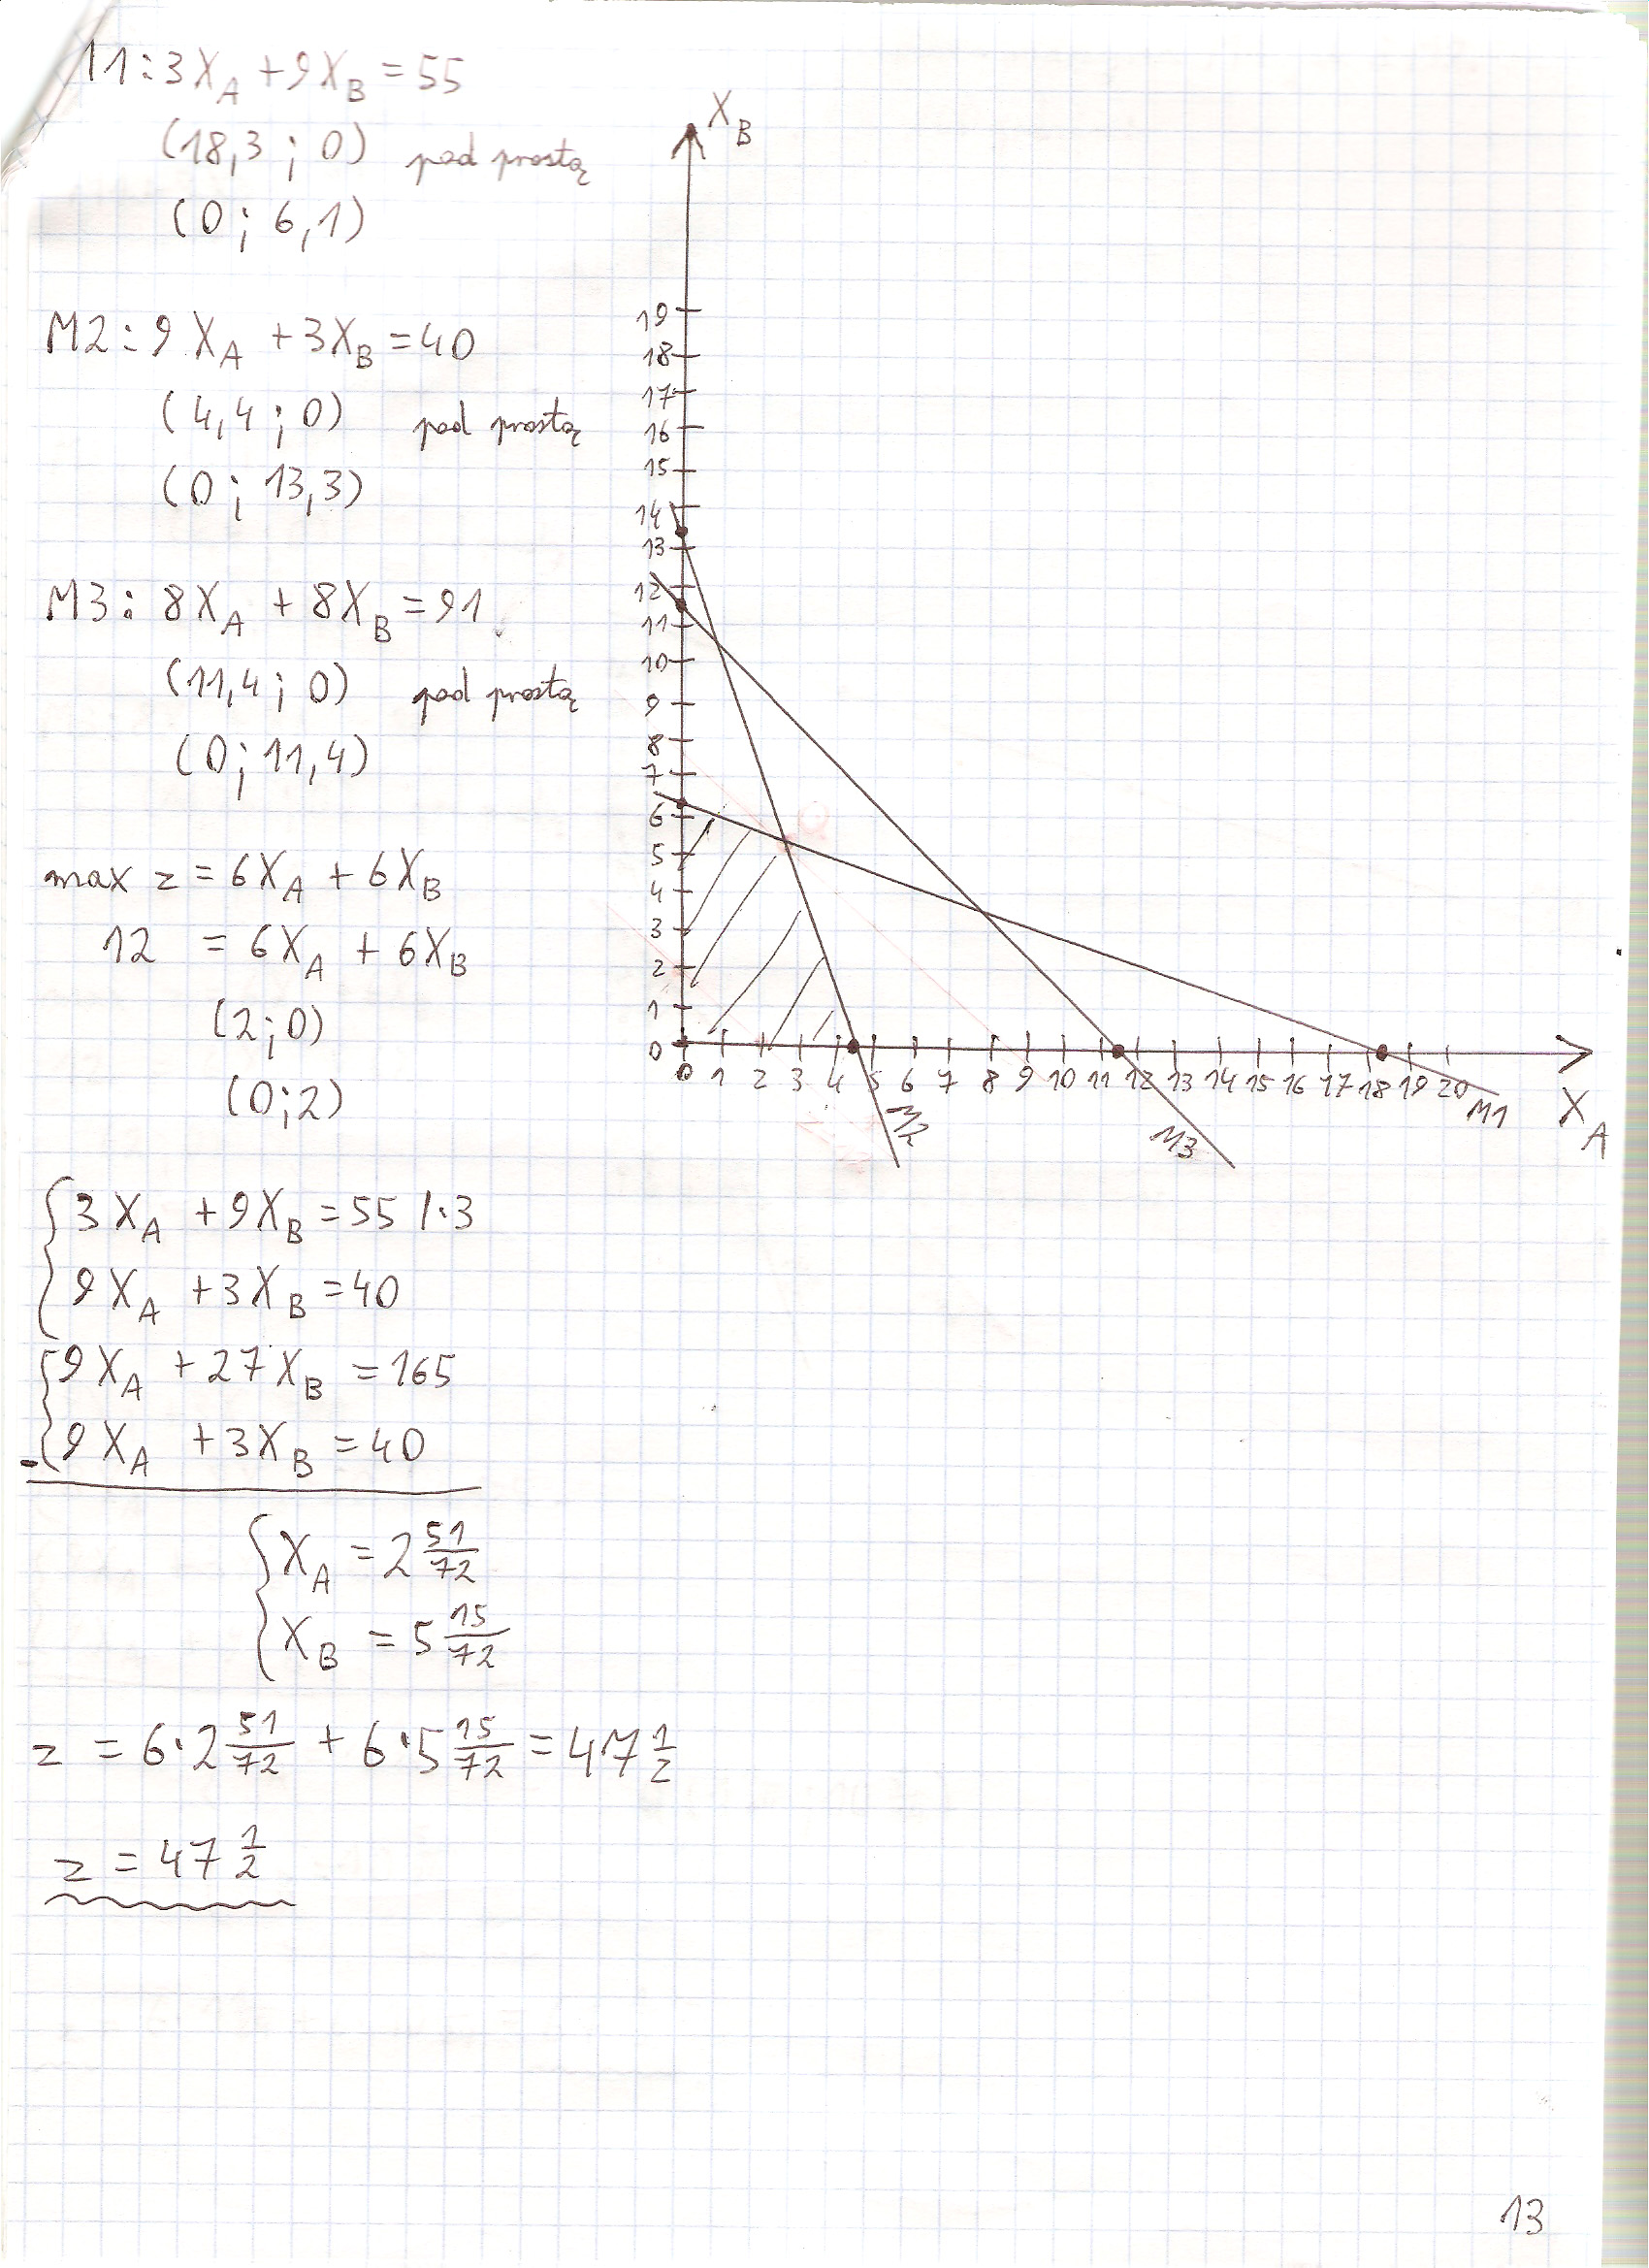 11: 3X_A + 9X_B = 55
(18,3 ; 0) pod prostą
(0 ; 6,1)
M2: 9X_A + 3X_B = 40
(4,4 ; 0) pod prostą
(0 ; 13,3)
M3: 8X_A + 8X_B = 91
(11,4 ; 0) pod prostą
(0 ; 11,4)
max z = 6X_A + 6X_B
12 = 6X_A + 6X_B
(2;0)
(0;2)
{ 3X_A + 9X_B = 55 /·3
9X_A + 3X_B = 40
{ 9X_A + 27X_B = 165
- 9X_A + 3X_B = 40
{ X_A = 2 51/72
X_B = 5 15/72
z = 6·2 51/72 + 6·5 15/72 = 47 1/2
z = 47 1/2
X_B
19
18
17
16
15
14
13
12
11
10
9
8
7
6
5
4
3
2
1
0
0 1 2 3 4 5 6 7 8 9 10 11 12 13 14 15 16 17 18 19 20
X_A
M2
M3
M1
13